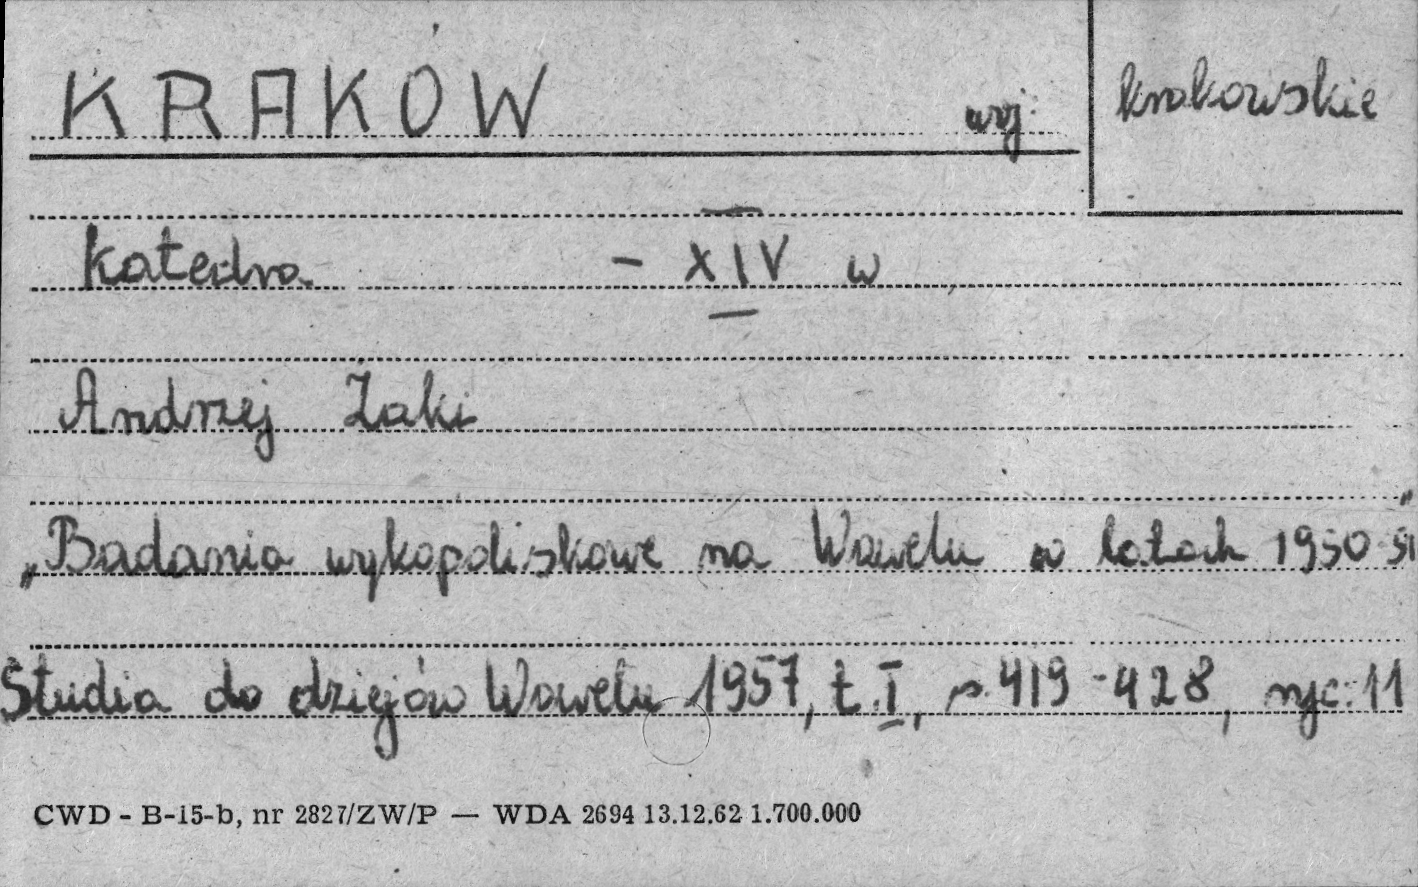 KRAKÓW woj. krakowskie
Katedra - XIV w
Andrzej Żaki
„Badania wykopaliskowe na Wawelu w latach 1950-51"
Studia do dziejów Wawelu 1957, t. I, s. 419-428, ryc. 11
CWD - B-15-b, nr 2827/ZW/P — WDA 2694 13.12.62 1.700.000